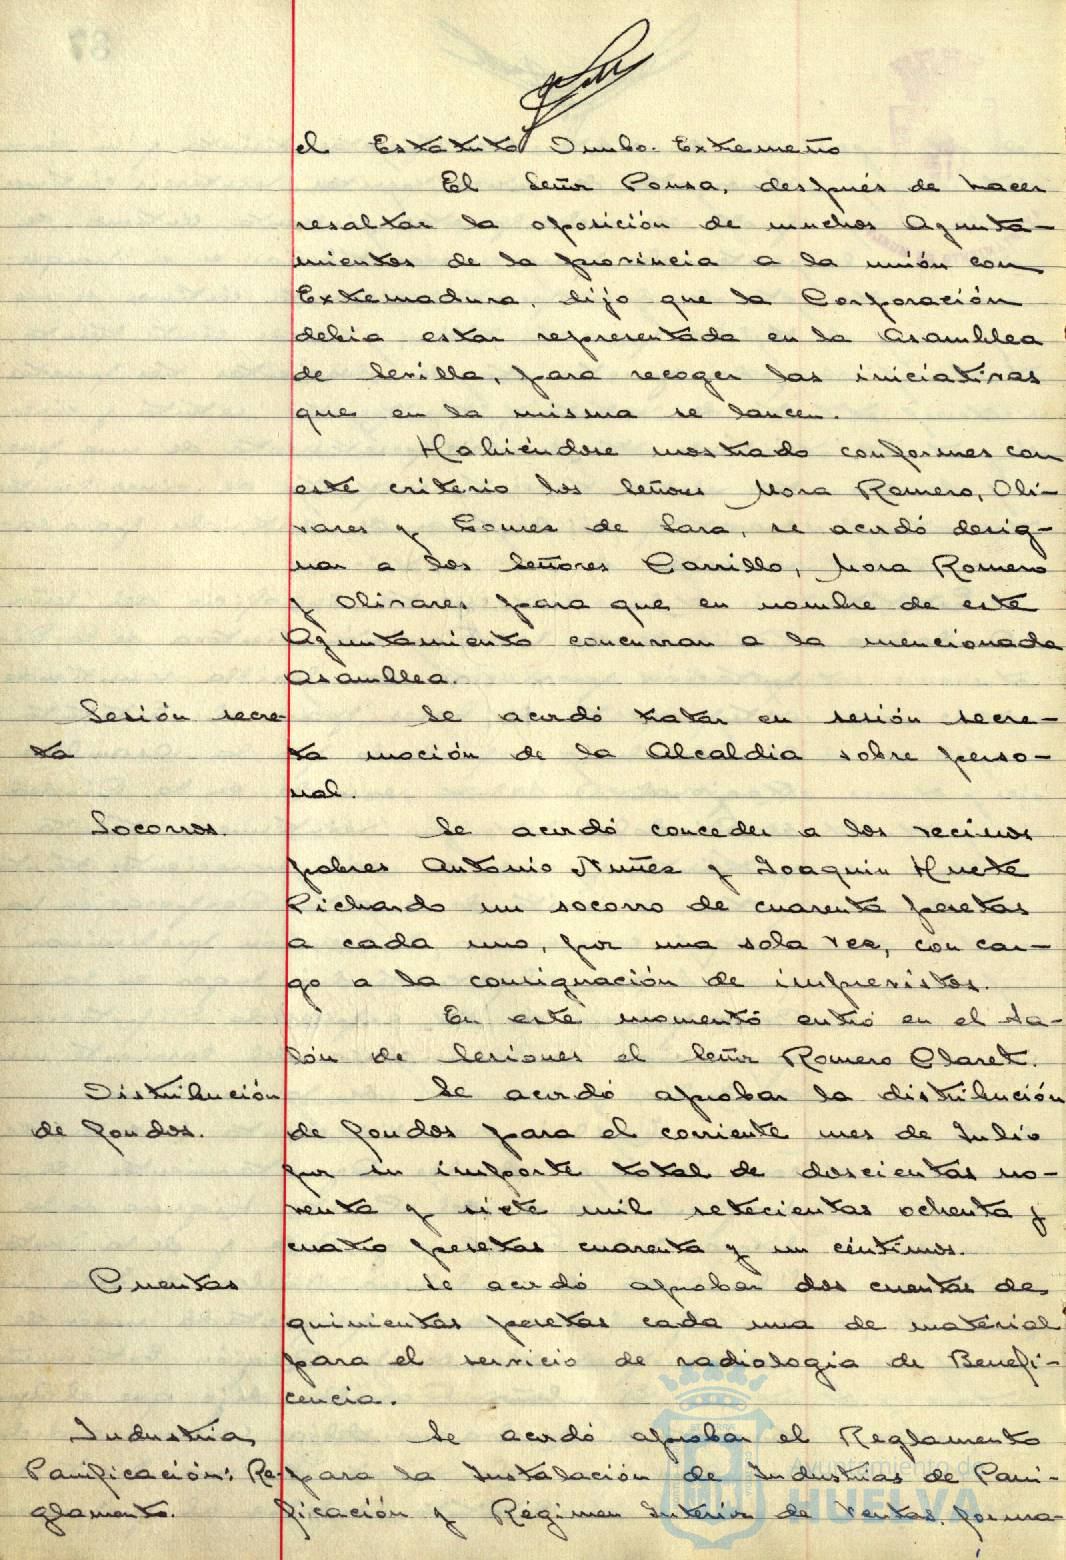 el Estatuto Onubo-Extremeño
El Señor Ponsa, después de hacer
resaltar la oposición de muchos Ayunta-
mientos de la provincia a la unión con
Extremadura, dijo que la Corporación
debia estar representada en la Asamblea
de Sevilla, para recoger las iniciativas
que en la misma se lancen.
Habiéndose mostrado conformes con
este criterio los Señores Mora Romero, Oli-
vares y Gomez de Lara, se acordó desig-
nar a los Señores Carrillo, Mora Romero
y Olivares para que en nombre de este
Ayuntamiento concurran a la mencionada
Asamblea.
Sesión secre
ta
Se acordó tratar en sesión secre-
ta moción de la Alcaldia sobre perso-
nal.
Socorros.
Se acordó conceder a los vecinos
pobres Antonio Nuñez y Joaquin Huete
Pichardo un socorro de cuarenta pesetas
a cada uno, por una sola vez, con car-
go a la consignación de imprevistos.
En este momento entró en el Sa-
lón de Sesiones el Señor Romero Claret.
Distribución
de fondos.
Se acordó aprobar la distribución
de fondos para el corriente mes de Julio
por su importe total de doscientas no-
venta y siete mil setecientas ochenta y
cuatro pesetas cuarenta y un céntimos.
Cuentas
Se acordó aprobar dos cuentas de
quinientas pesetas cada una de material
para el servicio de radiologia de Benefi-
cencia.
Industria
Panificación: Re
glamento.
Se acordó aprobar el Reglamento
para la Instalación de Industrias de Pani-
ficación y Régimen Interior de Ventas, forma-
Ayuntamiento de
HUELVA